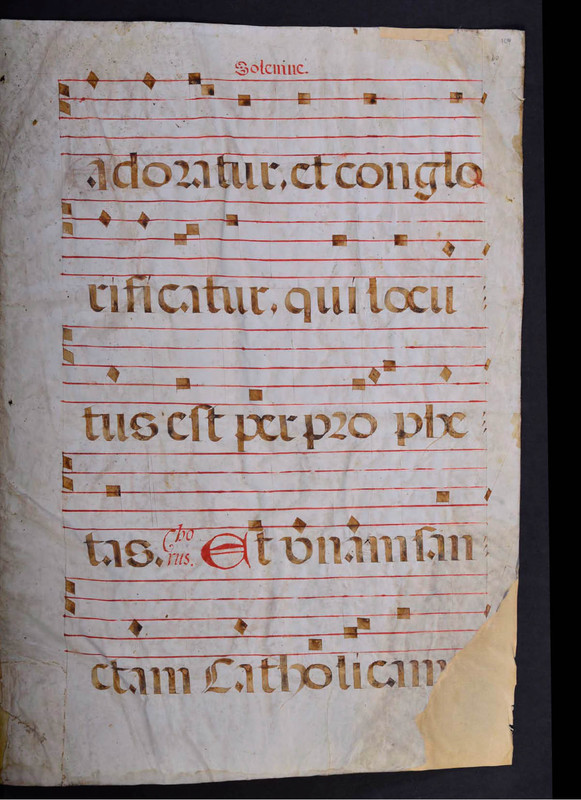 Solemne.
adoratur, et conglo
rificatur, qui locu
tus est per pro phe
tas. Cho rus. Et vnam san
ctam Catholicam